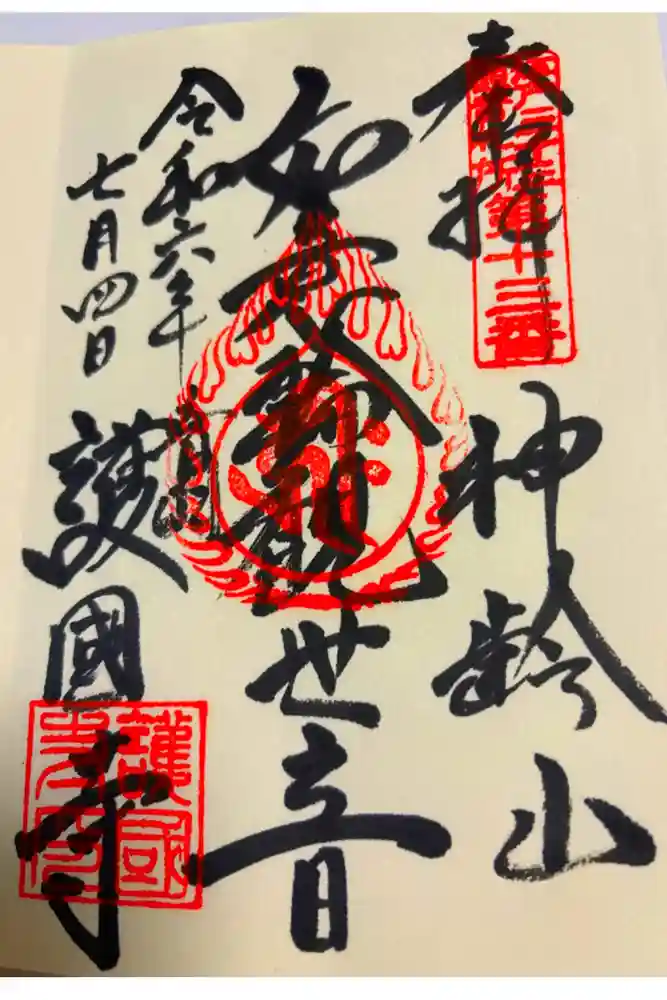 奉拝
第十三番
神齢山
如意輪観世音
令和六年
七月四日
護國寺
護國